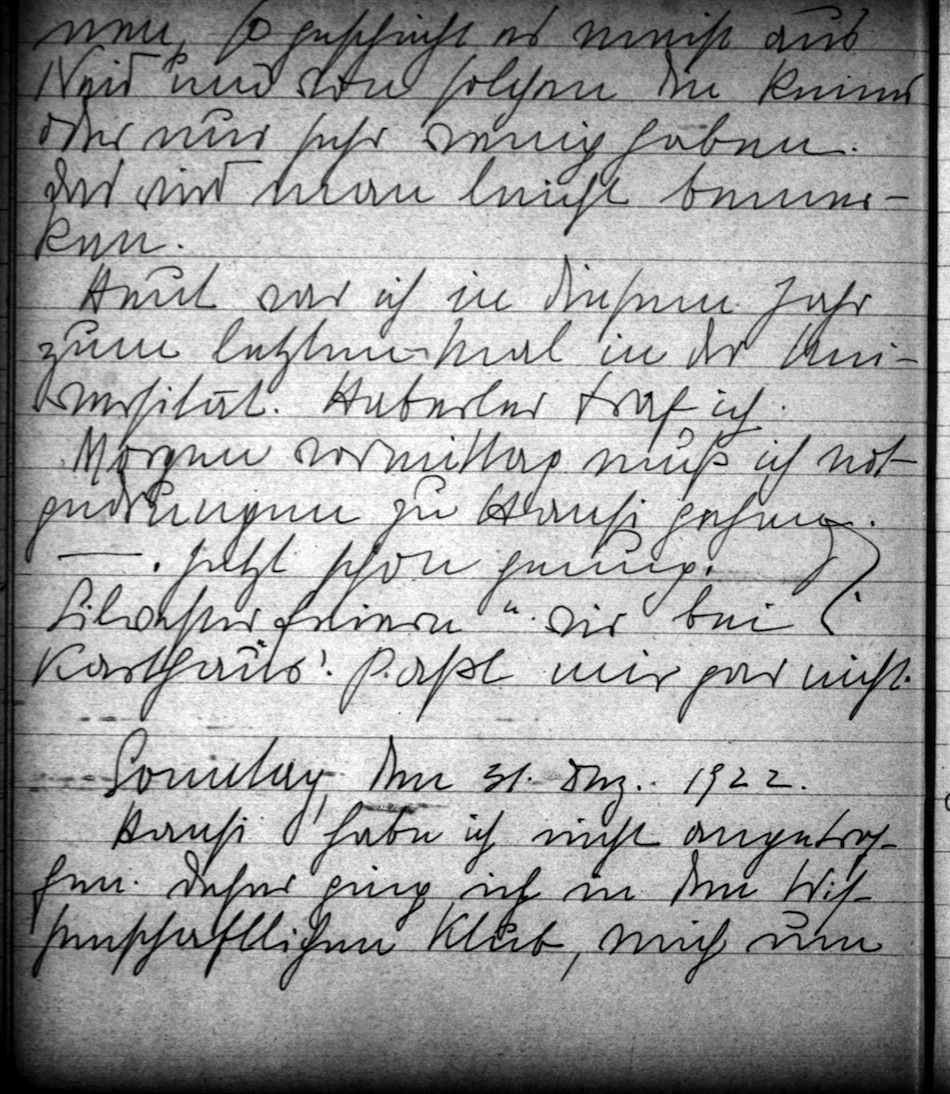 nen, so geschieht es meist aus
Neid und von solchen die keines
oder nur sehr wenig haben.
Das wird man leicht bemer-
ken.
Heut war ich in diesem Jahr
zum letzten Mal in der Uni-
versität. Haberler traf ich.
Morgen vormittag muß ich not-
gedrungen zu Hansi gehen.
—. Jetzt schon genug.
Silvester feiern wir bei
Karthaus'. Paßt mir gar nicht.
Sonntag, den 31. Dez. 1922.
Hansi habe ich nicht angetrof-
fen. Daher ging ich in den Wis-
senschaftlichen Klub, mich um